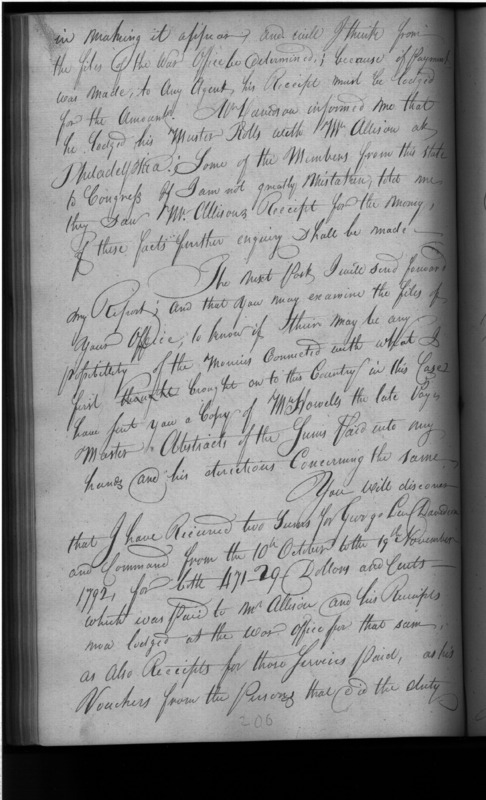 in making it appear, and will I think from
the files of the War Office be determined; because if Payment
was made, to any Agent, his Receipt must be lodged
for the Amount. Mr Davidson informed me that
he lodged his Muster Rolls with Mr. Allison at
Philadelphia; Some of the Members from this State
to Congress if I am not greatly mistaken, told me
they saw Mr. Allisons Receipt for the Money,
of these facts further enquiry shall be made —
The next Post I will send forward
my Report; and that you may examine the files of
your Office, to know if there may be any
possibility of the Monies Connected with what I
first brought on to this Country in this Case I
have sent you a Copy of Mr Howells the late Pay
Master Abstracts of the Sums Paid into my
hands and his directions Concerning the same —
You will discover
that I have Received two Sums for George Lew Davidson
and Command from the 10th October to the 19th November
1792, for both 471-29 Dollars and Cents —
which was Paid to Mr Allison and his Receipts
now lodged at the war office for that sum,
as also Receipts for those Services Paid, as his
Vouchers from the Persons that did the duty
206